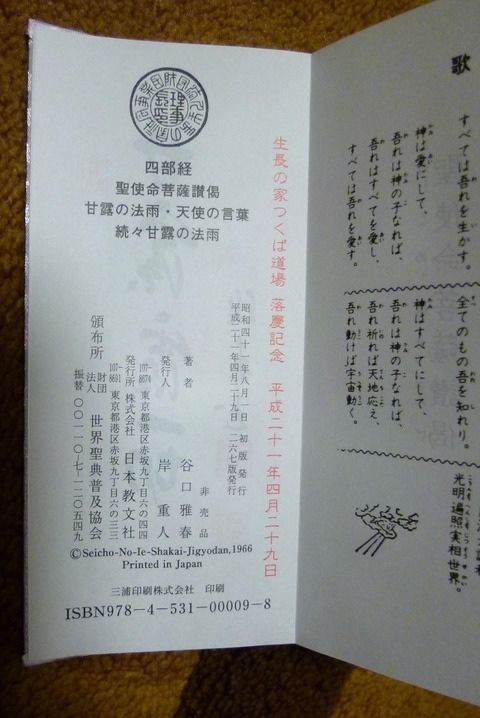 四部経
聖使命菩薩讃偈
甘露の法雨・天使の言葉
続々甘露の法雨
生長の家つくば道場 落慶記念 平成二十一年四月二十九日
昭和四十一年八月一日 初版発行
平成二十一年四月二十九日 二六七版発行
非売品
著者 谷口雅春
発行人 岸重人
107-8674 東京都港区赤坂九丁目六の四四
発行所 株式会社 日本教文社
107-8691 東京都港区赤坂九丁目六の三三
頒布所 財団法人 世界聖典普及協会
振替 〇〇一一〇-七-一二〇五四九
©Seicho-No-Ie-Shakai-Jigyodan,1966
Printed in Japan
三浦印刷株式会社 印刷
ISBN978-4-531-00009-8
歌
すべては吾れを生かす。
神は愛にして、
吾れは神の子なれば、
吾れはすべてを愛し、
すべては吾れを愛す。
全てのもの吾を知れり。
神はすべてにして、
吾れは神の子なれば、
吾れ祈れば天地応え、
吾れ動けば宇宙動く。
光明遍照実相世界。